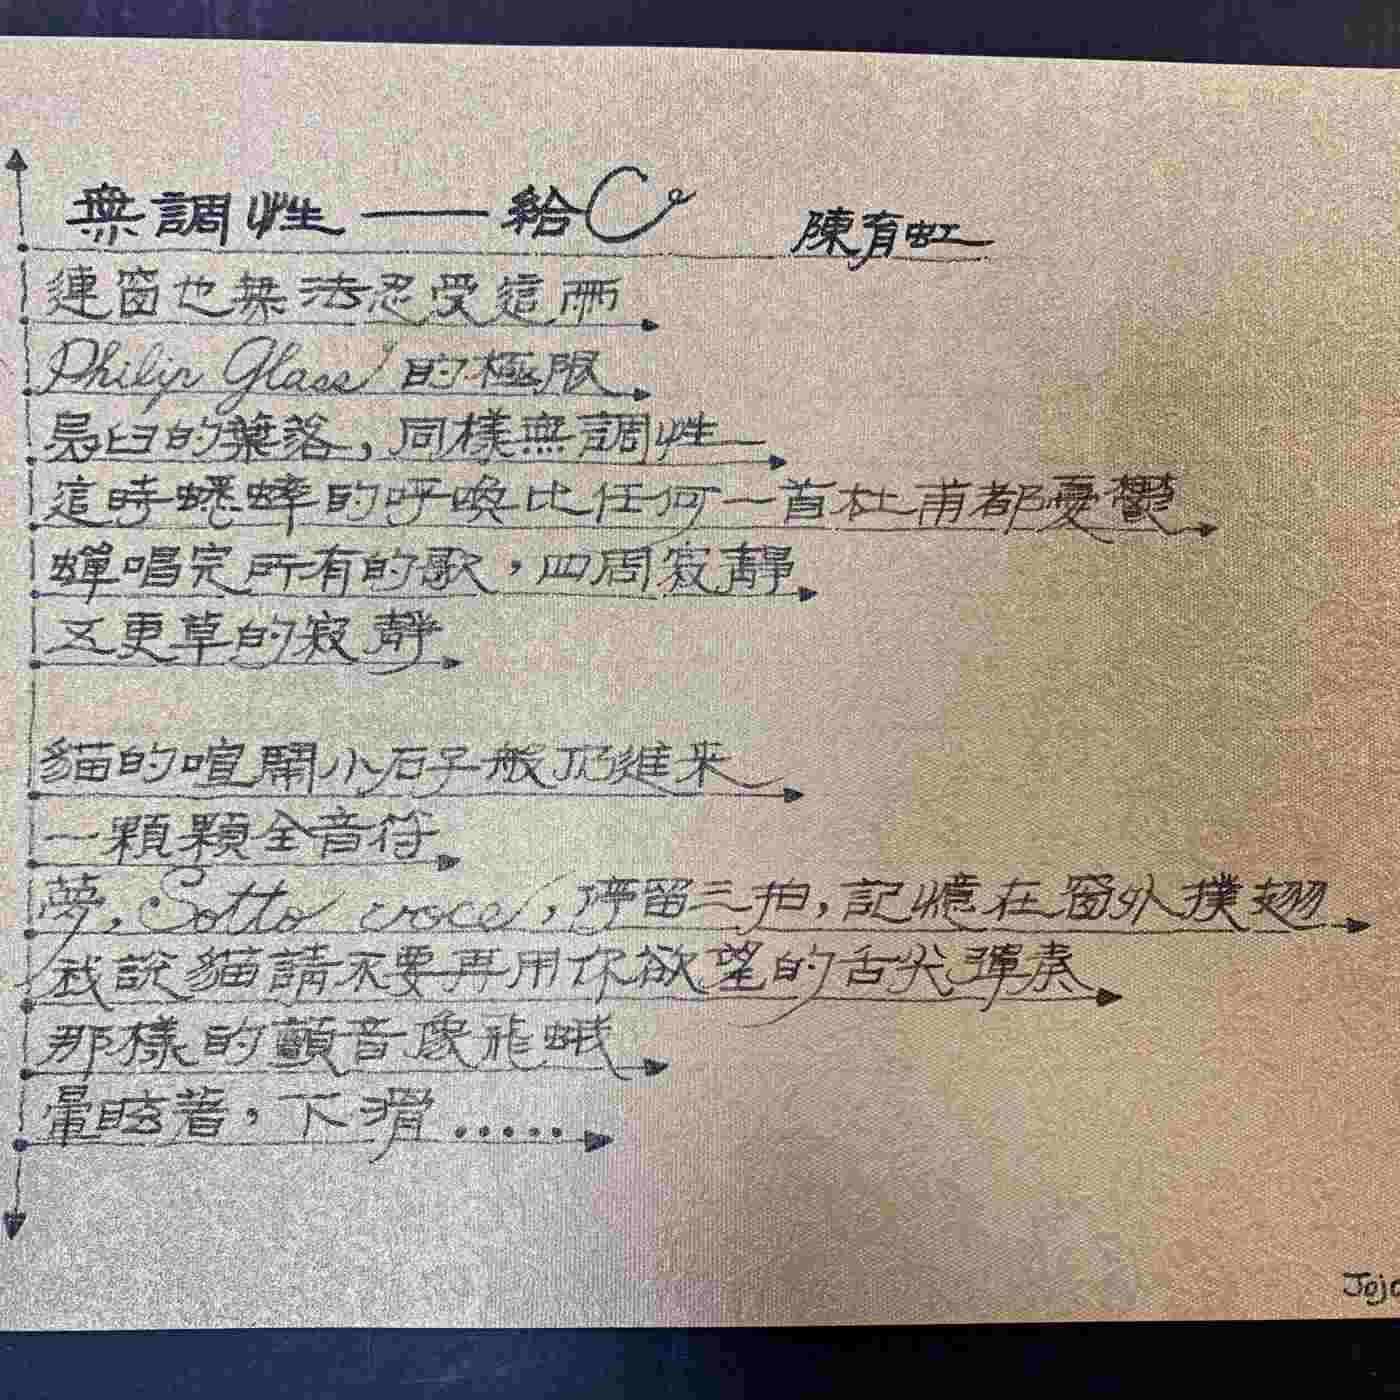 無調性——給C 陳育虹
連窗也無法忍受這雨
Philip Glass 的極限
的葉落，同樣無調性
這時蟋蟀的呼喚比任何一首杜甫都憂鬱
蟬唱完所有的歌，四周寂靜
又更草的寂靜
貓的喧鬧小石子般扔進來
一顆顆全音符
夢，Sotto voce，停留三拍，記憶在窗外撲翅
我說貓請不要再用你欲望的舌尖彈奏
那樣的顫音像飛蛾
暈眩著，下滑……